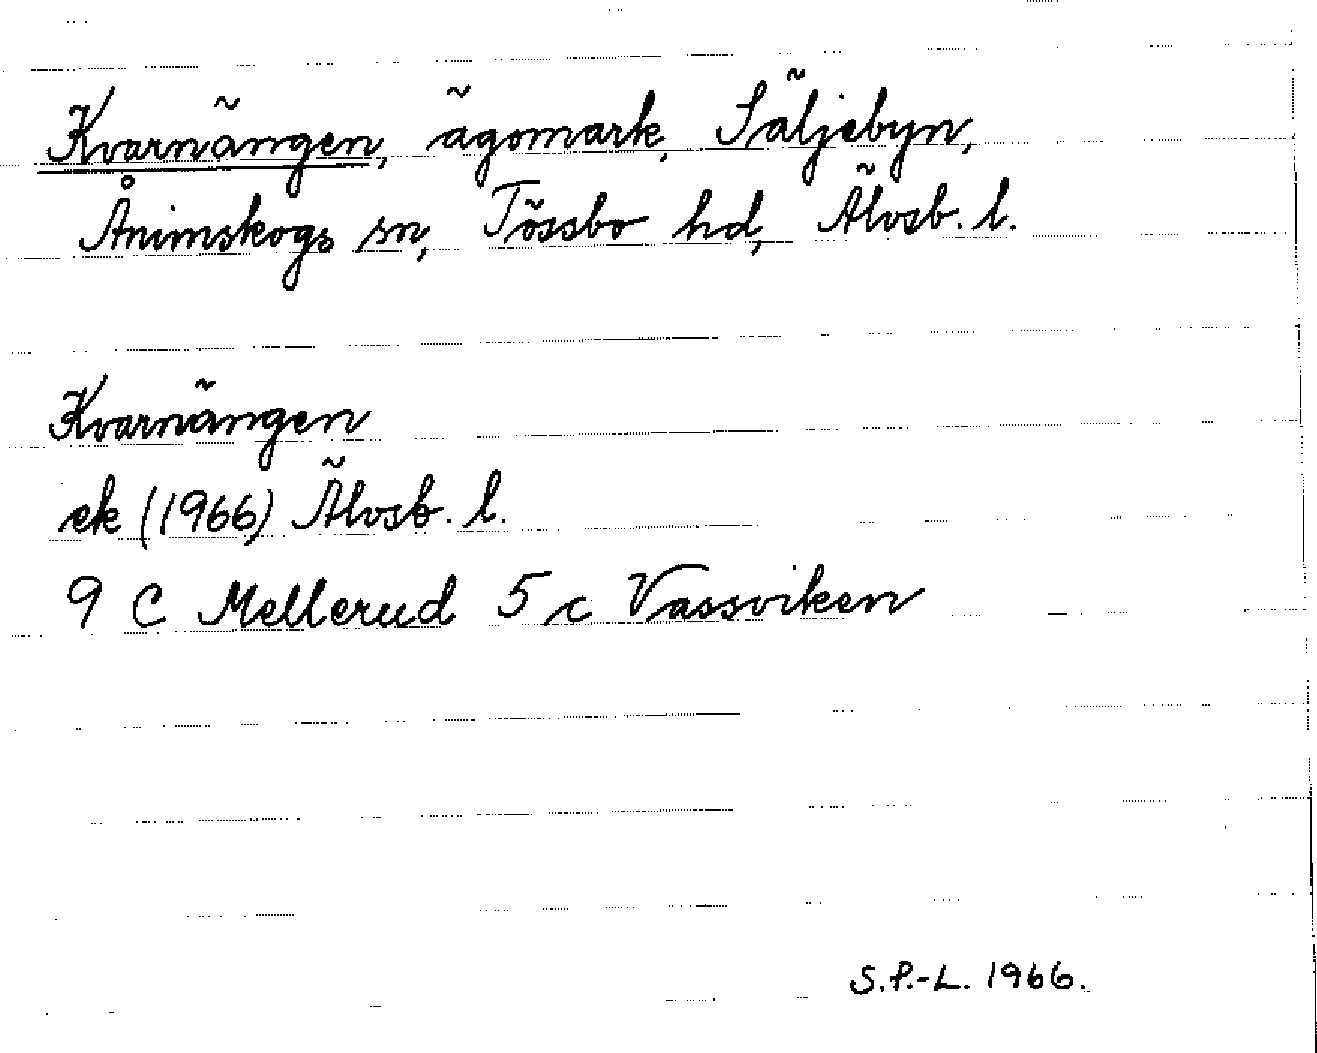 Kvarnängen, ägomark, Säljebyn,
Ånimskogs sn, Tössbo hd, Älvsb. l.
Kvarnängen
ek (1966) Älvsb. l.
9 C Mellerud 5 c Vassviken
S.P.-L. 1966.